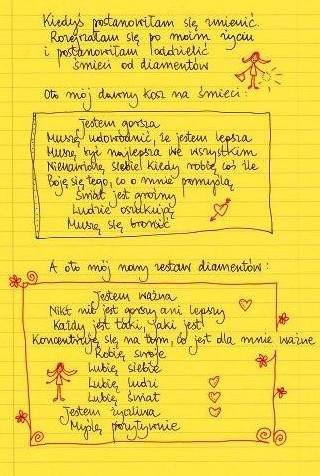 Kiedyś postanowiłam się zmienić.
Rozejrzałam się po moim życiu
i postanowiłam oddzielić
śmieci od diamentów
Oto mój dawny kosz na śmieci:
Jestem gorsza
Muszę udowodnić, że jestem lepsza
Muszę być najlepsza we wszystkim
Nienawidzę siebie kiedy robię coś źle
Boję się tego, co o mnie pomyślą
Świat jest groźny
Ludzie oszukują
Muszę się bronić
A oto mój nowy zestaw diamentów:
Jestem ważna
Nikt nie jest gorszy ani lepszy
Każdy jest taki, jaki jest
Koncentruję się na tym, co jest dla mnie ważne
Robię swoje
Lubię siebie
Lubię ludzi
Lubię świat
Jestem życzliwa
Myślę pozytywnie